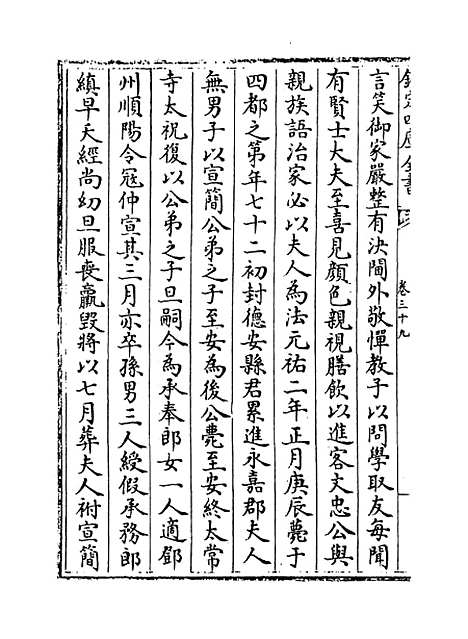 欽定四庫全書
卷三十九
言笑御家嚴整有決閫外敬憚教子以問學取友每聞
有賢士大夫至喜見顔色親視膳飲以進客文忠公與
親族語治家必以夫人為法元祐二年正月庚辰薨于
四都之第年七十二初封德安縣君累進永嘉郡夫人
無男子以宣簡公弟之子至安為後公薨至安終太常
寺太祝復以公弟之子旦嗣今為承奉郎女一人適鄧
州順陽令冦仲宣其三月亦卒孫男三人綬假承務郎
縝早夭經尚幼旦服喪羸毀將以七月葬夫人祔宣簡